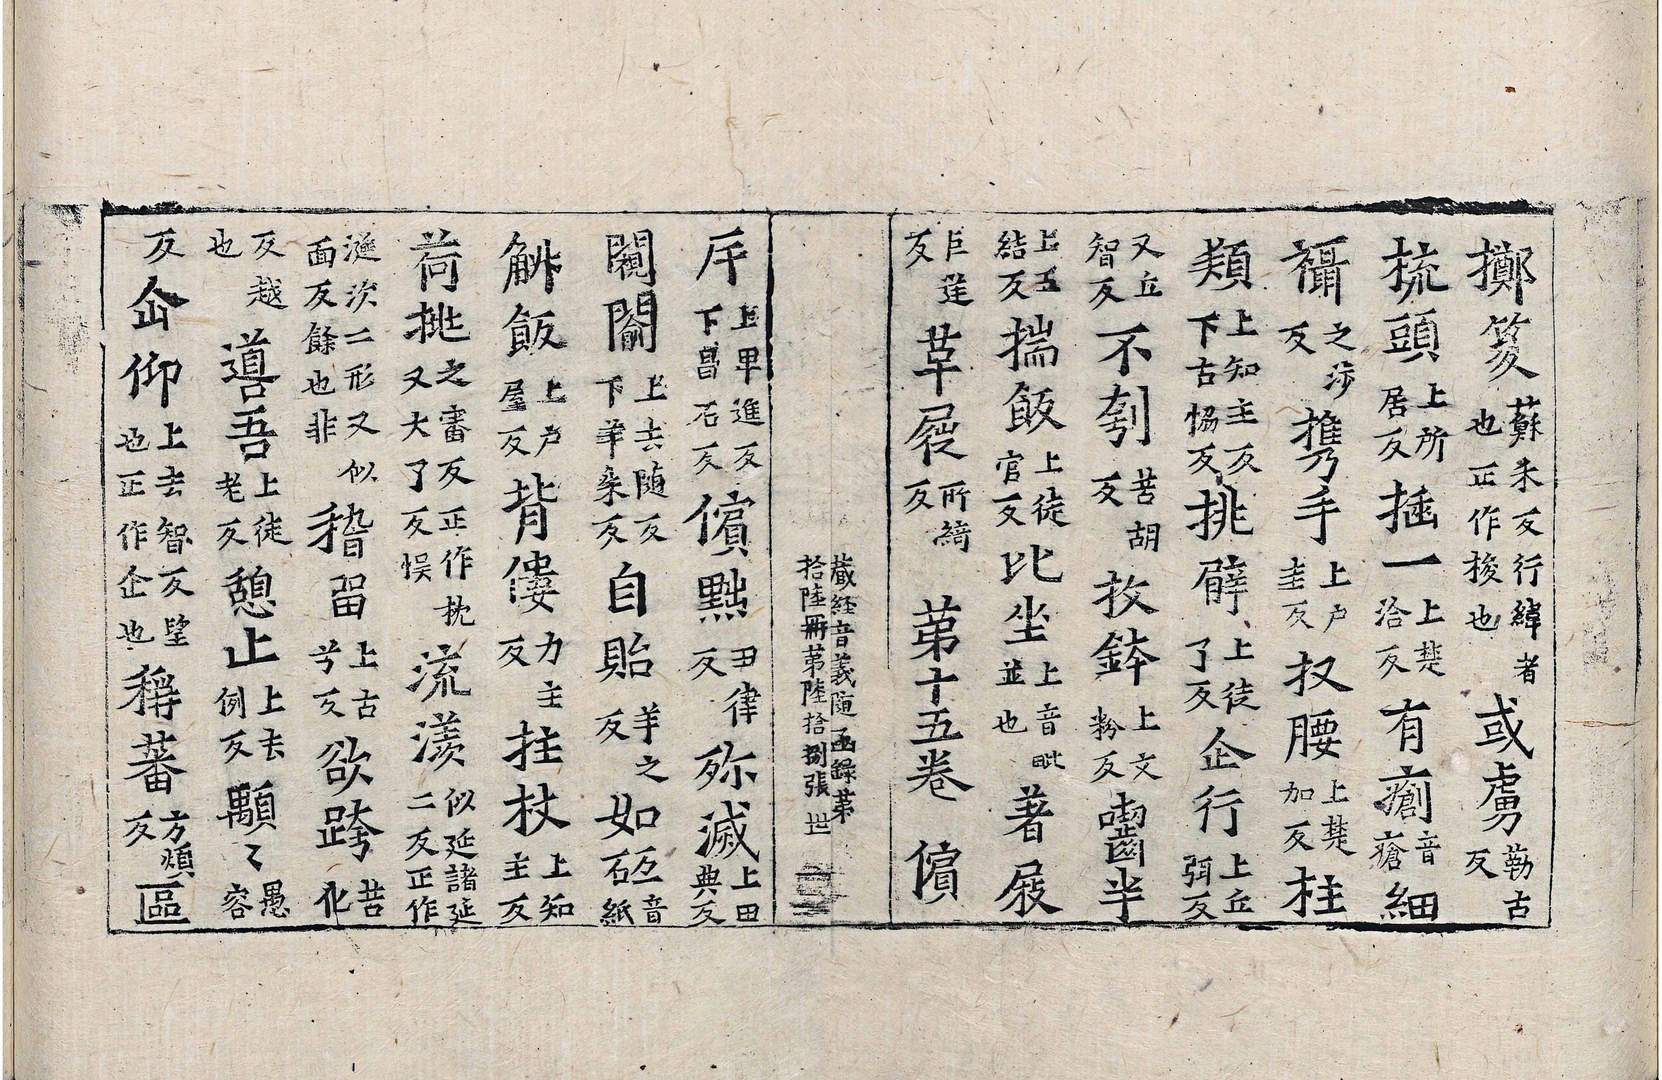 擲笅蘇朱反行緯者也正作梭也或虜勒古反
梳頭上所居反插一上楚洽反有瘡音瘡細
襵之涉反㩦手上户圭反扠腰上楚加反柱
頬上知主反下古恊反挑臂上徒了反企行上丘弭反
又丘智反不刳苦胡反抆鉢上文粉反嚙半
上五結反揣飯上徒官反比坐上音毗並也著屐
巨逆反草屣所綺反第十五卷儐
藏經音義随函録第拾陸冊第陸拾捌張世
斥上畢進反下昌石反儐黜丑律反殄滅上田典反
闚闟上去随反下羊朱反自貽羊之反如砥音紙
斛飯上户屋反背僂力主反拄杖上知主反
荷挑之審反正作枕又大了反悮流渼似延諸延二反正作
涎次二形又似面反餘也非稽留上古兮反欲跨苦化
反越也噵吾上徒老反憩止上去例反顒〻愚容
反企仰上去智反望也正作企也稱蕃方煩反區